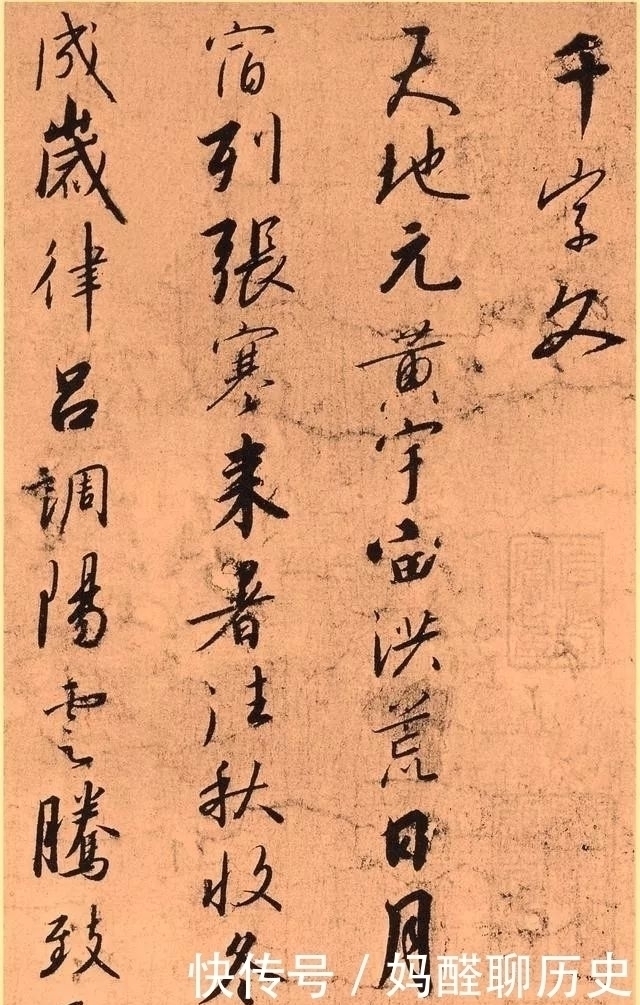 千字文
天地元黄宇宙洪荒日月
宿列張寒来暑往秋收冬
成歲律呂調陽雲騰致
快传号 / 妈醛聊历史